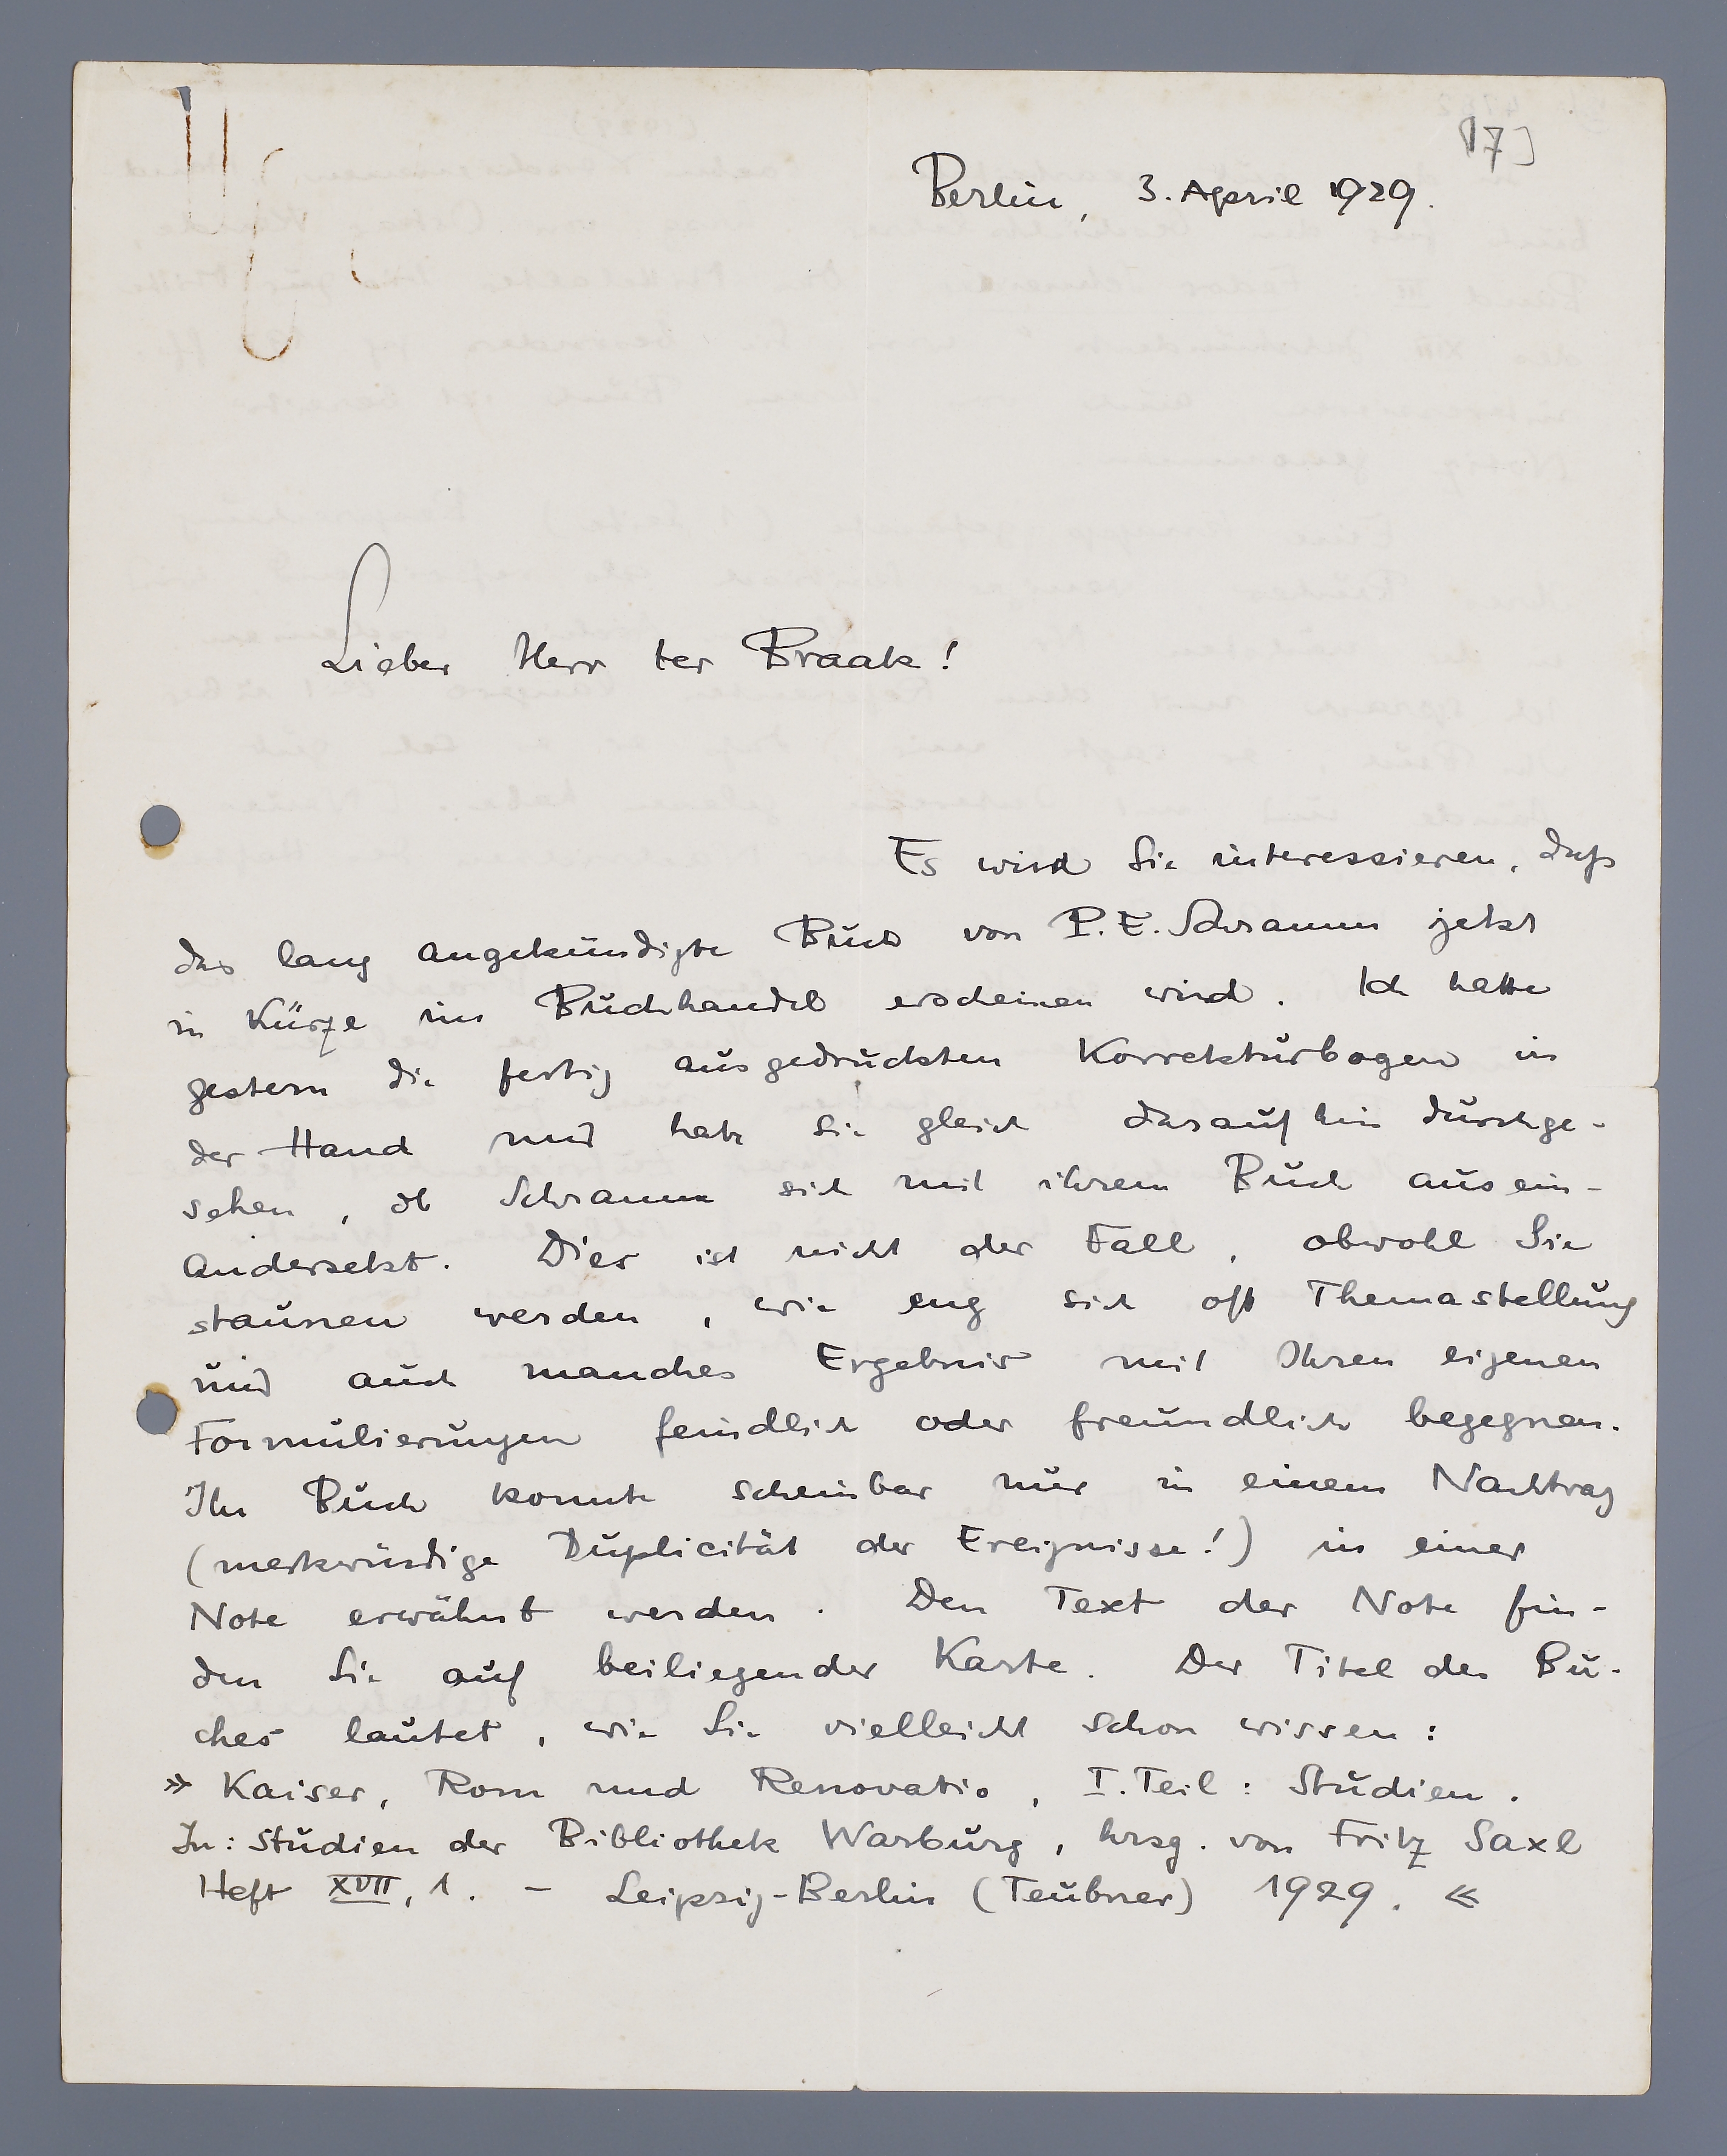 [7]
Berlin, 3. April 1929.
Lieber Herr ter Braak!
Es wird Sie interessieren, daß
das lang angekündigte Buch von P. E. Schramm jetzt
in Kürze im Buchhandel erscheinen wird. Ich hatte
gestern die fertig ausgedruckten Korrekturbogen in
der Hand und habe sie gleich daraufhin durchge-
sehen, ob Schramm sich mit ihrem Buch ausein-
andersetzt. Dies ist nicht der Fall, obwohl Sie
staunen werden, wie eng sich oft Themastellung
und auch manches Ergebnis mit Ihren eigenen
Formulierungen feindlich oder freundlich begegnen.
Ihr Buch konnte scheinbar nur in einem Nachtrag
(merkwürdige Duplicität der Ereignisse!) in einer
Note erwähnt werden. Den Text der Note fin-
den Sie auf beiliegender Karte. Der Titel des Bu-
ches lautet, wie Sie vielleicht schon wissen:
» Kaiser, Rom und Renovatio, I. Teil: Studien.
In: Studien der Bibliothek Warburg, hrsg. von Fritz Saxl
Heft XVII, 1. – Leipzig-Berlin (Teubner) 1929. «